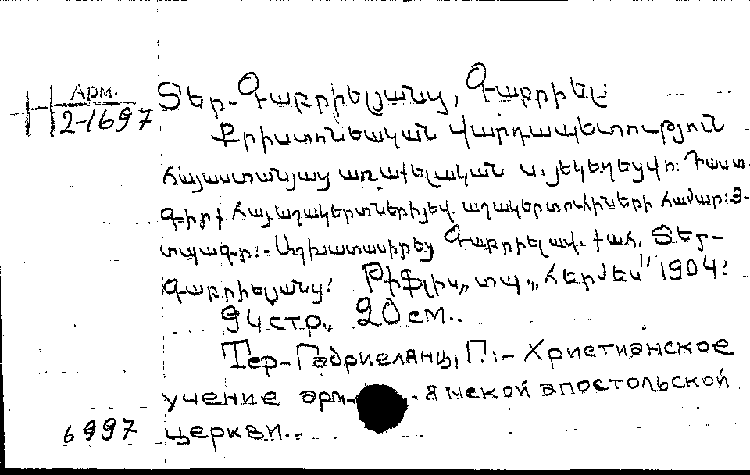 Арм.
2-1697
Տեր-Գաբրիելյանց, Գաբրիել
Քրիստոնեական վարդապետություն
հայաստանյայց առաքելական ս. յեկեղեցվո: Դասա-
գիրք հայ աղակերտների յեվ աղակերտուհիների համար: 3-
տպագր:- Աշխատասիրեց Գաբրիել ավ. քահ. Տեր-
Գաբրիելյանց: Թիֆլիս, տպ. „Հերմես" 1904:
94 стр., 20 см..
Тер-Габриелянц, Г.:- Христианское
учение арм- янской апостольской
6997 церкви..